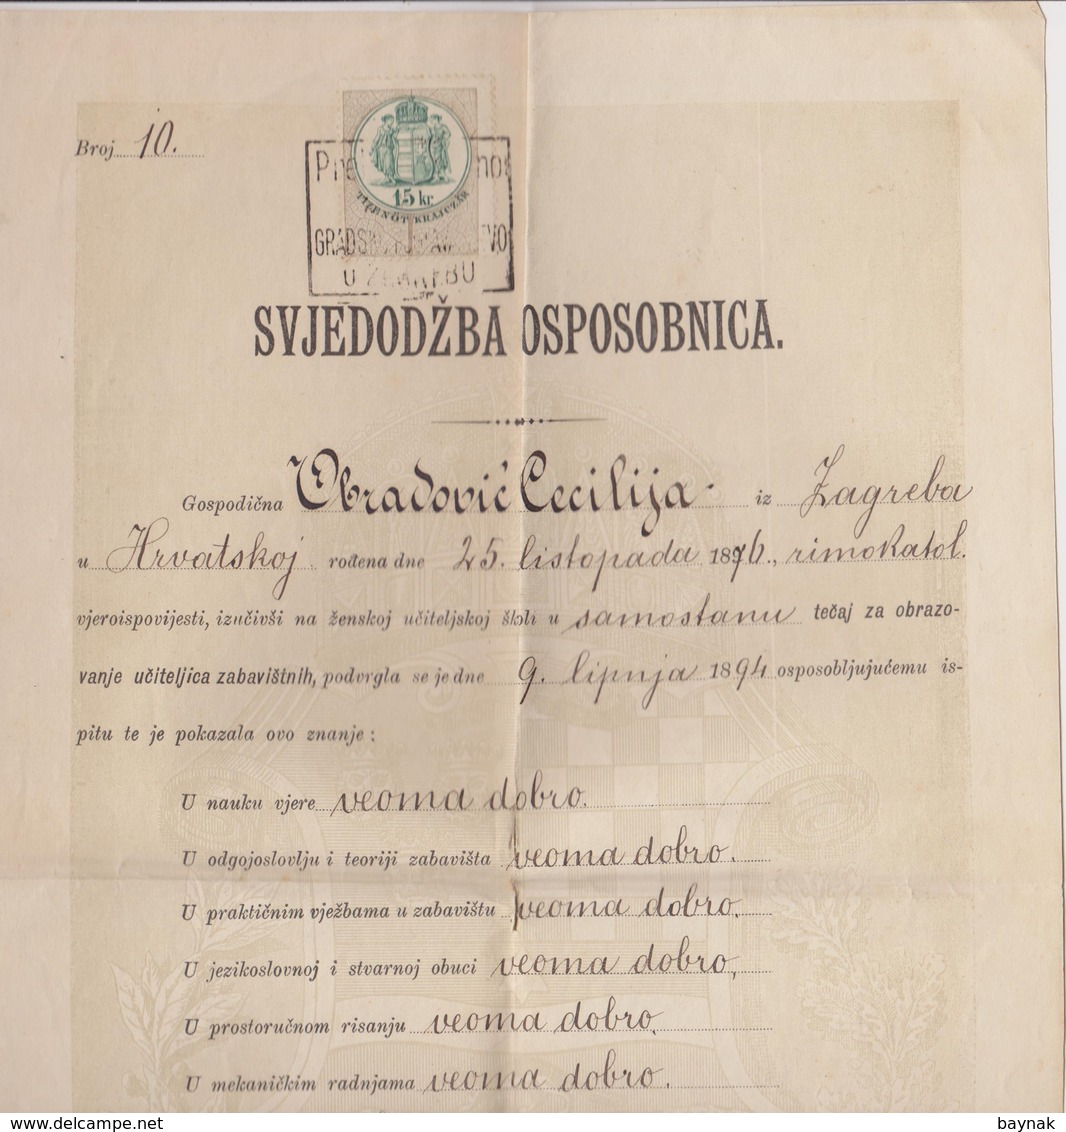 Broj 10.
15 kr.
TIZENÖT KRAJCZÁR
U ZAGREBU
SVJEDODŽBA OSPOSOBNICA.
Gospodična Obradović Cecilija iz Zagreba
u Hrvatskoj rođena dne 25. listopada 1876., rimokatol.
vjeroispovijesti, izučivši na ženskoj učiteljskoj školi u samostanu tečaj za obrazo-
vanje učiteljica zabavištnih, podvrgla se je dne 9. lipnja 1894 osposobljujućemu is-
pitu te je pokazala ovo znanje:
U nauku vjere veoma dobro.
U odgojoslovlju i teoriji zabavišta veoma dobro.
U praktičnim vježbama u zabavištu veoma dobro.
U jezikoslovnoj i stvarnoj obuci veoma dobro,
U prostoručnom risanju veoma dobro.
U mekaničkim radnjama veoma dobro.
delcampe.net
baynak